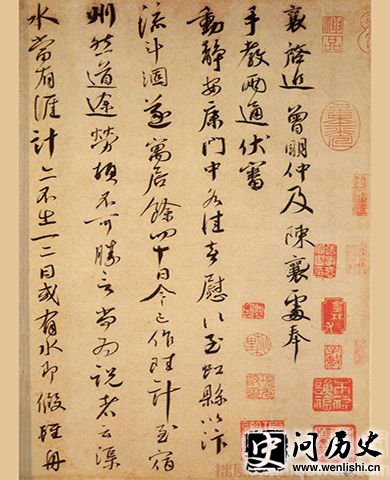 襄啓近曾明仲及陳襄處奉
手教兩通伏審
動靜安康門中各佳喜慰〻至虹縣以汴
流斗涸遂寓居餘四十日今已作陸計至宿
州然道途勞頓不可勝言尚為說者云渠
水當有涯計亦不出一二日或有水即假輕舟
问历史
www.wenlishi.cn